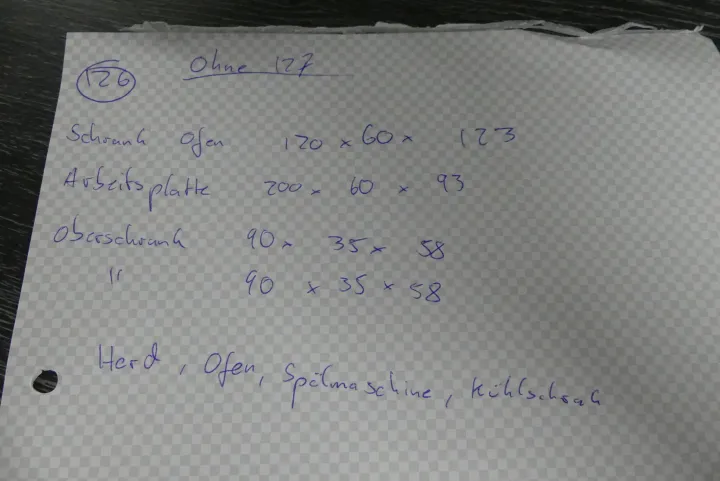 126 Ohne 127
Schrank Ofen 120 x 60 x 123
Arbeitsplatte 200 x 60 x 93
Oberschrank 90 x 35 x 58
" 90 x 35 x 58
Herd, Ofen, Spülmaschine, Kühlschrak